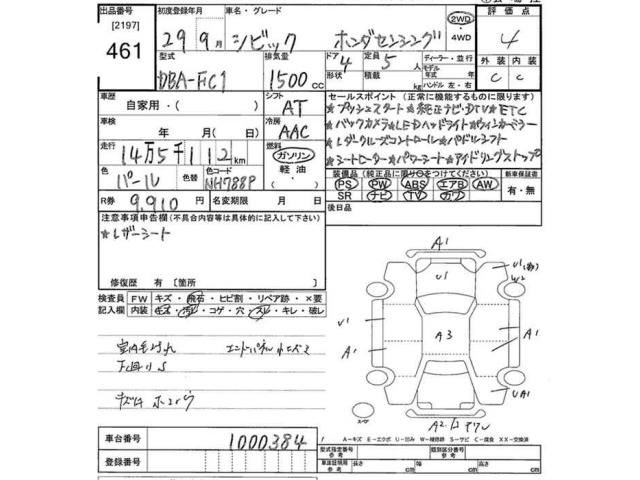 出品番号 初度登録年月 車名・グレード 2WD 評価点
[2197] 29年9月 シビック ホンダセンシング 4WD 4
461 型式 排気量 ドア 定員 ディーラー・並行 外装 内装
DBA-FC1 1500cc 形状 4 5人 積載 kg モデル年式 年 ハンドル 左・右 C C
車歴 シフト セールスポイント (正常に機能するものに限ります)
自家用・( ) AT ★プッシュスタート★純正ナビ・DTV★ETC
車検 冷房 ★バックカメラ★LEDヘッドライト★ウィンカーミラー
年 月( 日) AAC ★レーダクルーズコントロール★パドルシフト
走行 燃料 ★シートヒーター★パワーシート★アイドリングストップ
14万5千112km ガソリン
色 色替 色コード 軽油 装備品 (純正品に限り○をつけてください) 新車保証書
パール NH788P ・( ) PS PW ABS エアB AW 有・無
R券 9,910円 名変期限 月 日 SR ナビ TV カワ
注意事項申告欄(不具合内容等は具体的に記入して下さい) 後日品
★レザーシート
修復歴 有 [箇所 ]
検査員 FW キズ・飛石・ヒビ割・リペア跡・×要
記入欄 内装 キズ・汚レ・コゲ・穴・スレ・キレ・破レ
A1
U1
U1
W2
U1
A1
A3
A1
UA1
A2
下廻りS
車台番号 1000384
登録番号
A－キズ E－エクボ U－凹み W－補修跡 S－サビ C－腐食 XX－交換済
型式指定番号 参考 類別区分番号 参考
車庫証明用 参考 長さ cm 幅 cm 高さ cm